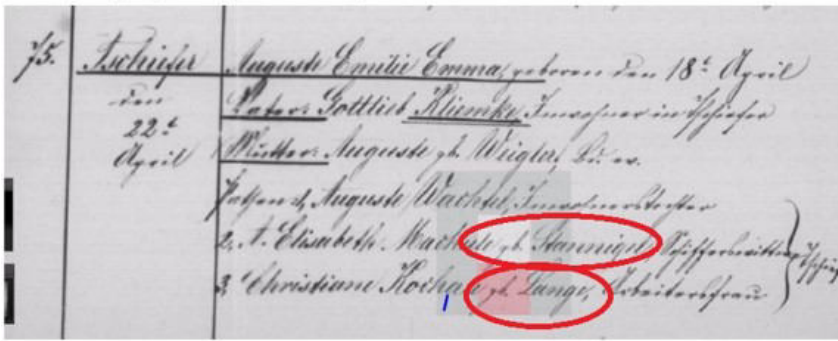 75. Tschiefer Auguste Emilie Emma, geboren den 18t April
den Vater: Gottlieb Kliemke, Inwohner in Tschiefer
22t
April Mutter: Auguste gb. Weigler, Bd. ev.
Pathen 1, Auguste Wachtel, Inwohnerstochter
2, A. Elisabeth Machule gb. Stannigel Schifferwittwe
3, Christiane Kochale gb. Lange, Arbeitersfrau
Tschiefer